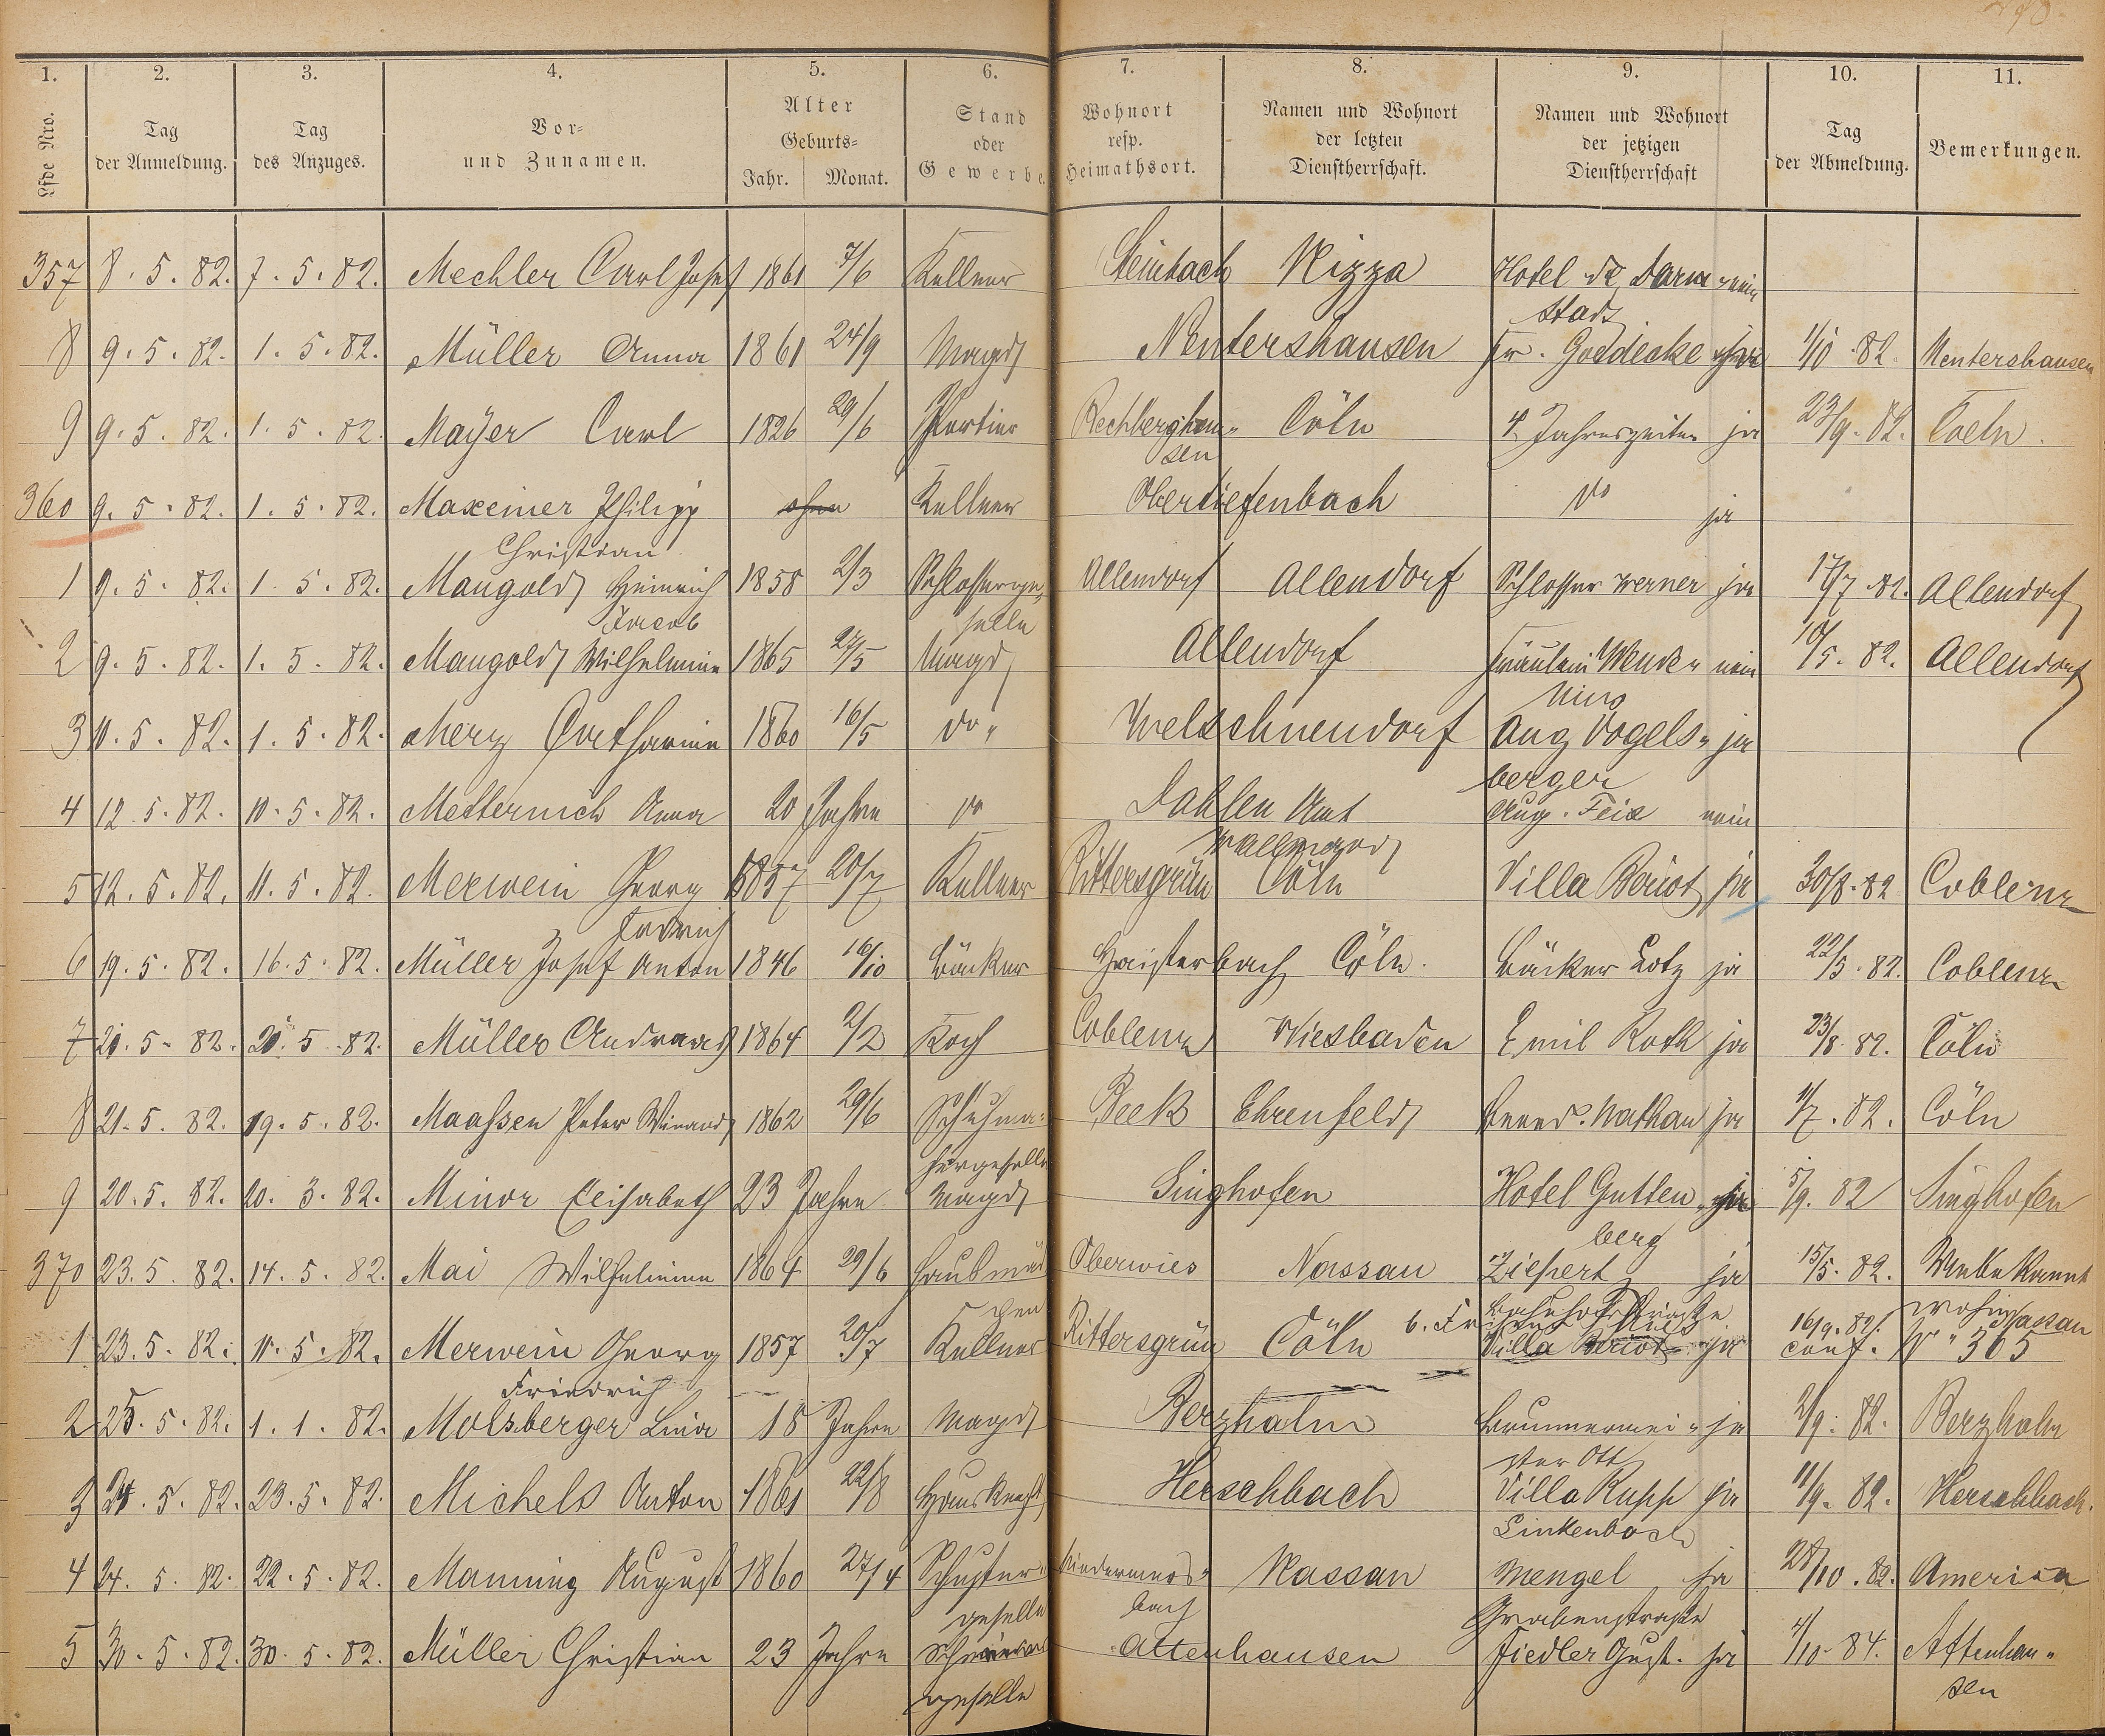 1. 2. 3. 4. 5. 6. 7. 8. 9. 10. 11.
Lfde Nro. Tag der Anmeldung. Tag des Anzuges. Vor- und Zunamen. Alter Geburts- Jahr. Monat. Stand oder Gewerbe. Wohnort resp. Heimathsort. Namen und Wohnort der letzten Dienstherrschaft. Namen und Wohnort der jetzigen Dienstherrschaft Tag der Abmeldung. Bemerkungen.
357 8. 5. 82. 7. 5. 82. Mechler Carl Josef 1861 7/6 Kellner Steinbach Nizza Hotel de Darm- nein
stadt
8 9. 5. 82. 1. 5. 82. Müller Anna 1861 24/9 Magd Nentershausen Fr. Goedecke ja 1/10 82. Nentershausen
9 9. 5. 82. 1. 5. 82. Mayer Carl 1826 29/6 Portier Rechberghau- Cöln 4 Jahreszeiten ja 23/9. 82. Coeln.
sen
360 9. 5. 82. 1. 5. 82. Maxeiner Philipp ohne Kellner Obertiefenbach do ja
Christian
1 9. 5. 82. 1. 5. 82. Mangold Heinrich 1858 2/3 Schlosserge- Allendorf Allendorf Schlosser Werner ja 17/7 82. Allendorf
Jacob selle
2 9. 5. 82. 1. 5. 82. Mangold Wilhelmine 1865 27/5 Magd Allendorf Fräulein nein 10/5. 82. Allendorf
3 10. 5. 82. 1. 5. 82. Merz Catharine 1860 16/5 do " Welschneudorf Aug Vogels- ja
berger
4 12. 5. 82. 10. 5. 82. Metternich Anna 20 Jahre do Dahlen Amt Aug. Feix nein
Wallmerod
5 12. 5. 82. 11. 5. 82. Merwein Georg 1857 20/7 Kellner Rittersgrün Cöln Villa Beriot ja 30/8. 82 Coblenz
Friedrich
6 19. 5. 82. 16. 5. 82. Müller Josef Anton 1846 16/10 Bäcker Haisterbach Cöln. Bäcker Lotz ja 22/5. 82. Coblenz
7 21. 5. 82. 20. 5. 82. Müller Andreas 1864 2/2 Koch Coblenz Wiesbaden Emil Roth ja 23/8. 82. Cöln
8 21. 5. 82. 19. 5. 82. Maaßen Peter Winand 1862 29/6 Schuhma- Beek Ehrenfeld Nathan ja 1/7. 82. Cöln
chergeselle
9 20. 5. 82. 20. 3. 82. Minor Elisabeth 23 Jahre Magd Singhofen Hotel Gutten- ja 5/9. 82 Singhofen
berg
370 23. 5. 82. 14. 5. 82. Mai Wilhelmine 1864 29/6 Hausmäd Oberwies Nassau Ziepert ja 15/5. 82. Unbekannt
chen wohin
1 23. 5. 82. 11. 5. 82. Merwein Georg 1857 20/7 Kellner Rittersgrün Cöln Villa Beriot ja 16/9. 82. conf. Nassau № 365
Friedrich
2 25. 5. 82. 1. 1. 82. Molsberger Lina 18 Jahre Magd Berzhahn Brunnenmei- ja 2/9. 82. Berzhahn
ster Ott
3 24. 5. 82. 23. 5. 82. Michels Anton 1861 22/8 Hausknecht Herschbach Villa Rupp ja 11/9. 82. Herschbach.
Linkenbach
4 24. 5. 82. 22. 5. 82. Manning August 1860 27/4 Schuster- Nassau Mengel ja 28/10. 82. America
geselle bach Grabenstraße
5 30. 5. 82. 30. 5. 82. Müller Christian 23 Jahre Attenhausen Fiedler Gust. ja 4/10. 84. Attenhau-
geselle sen